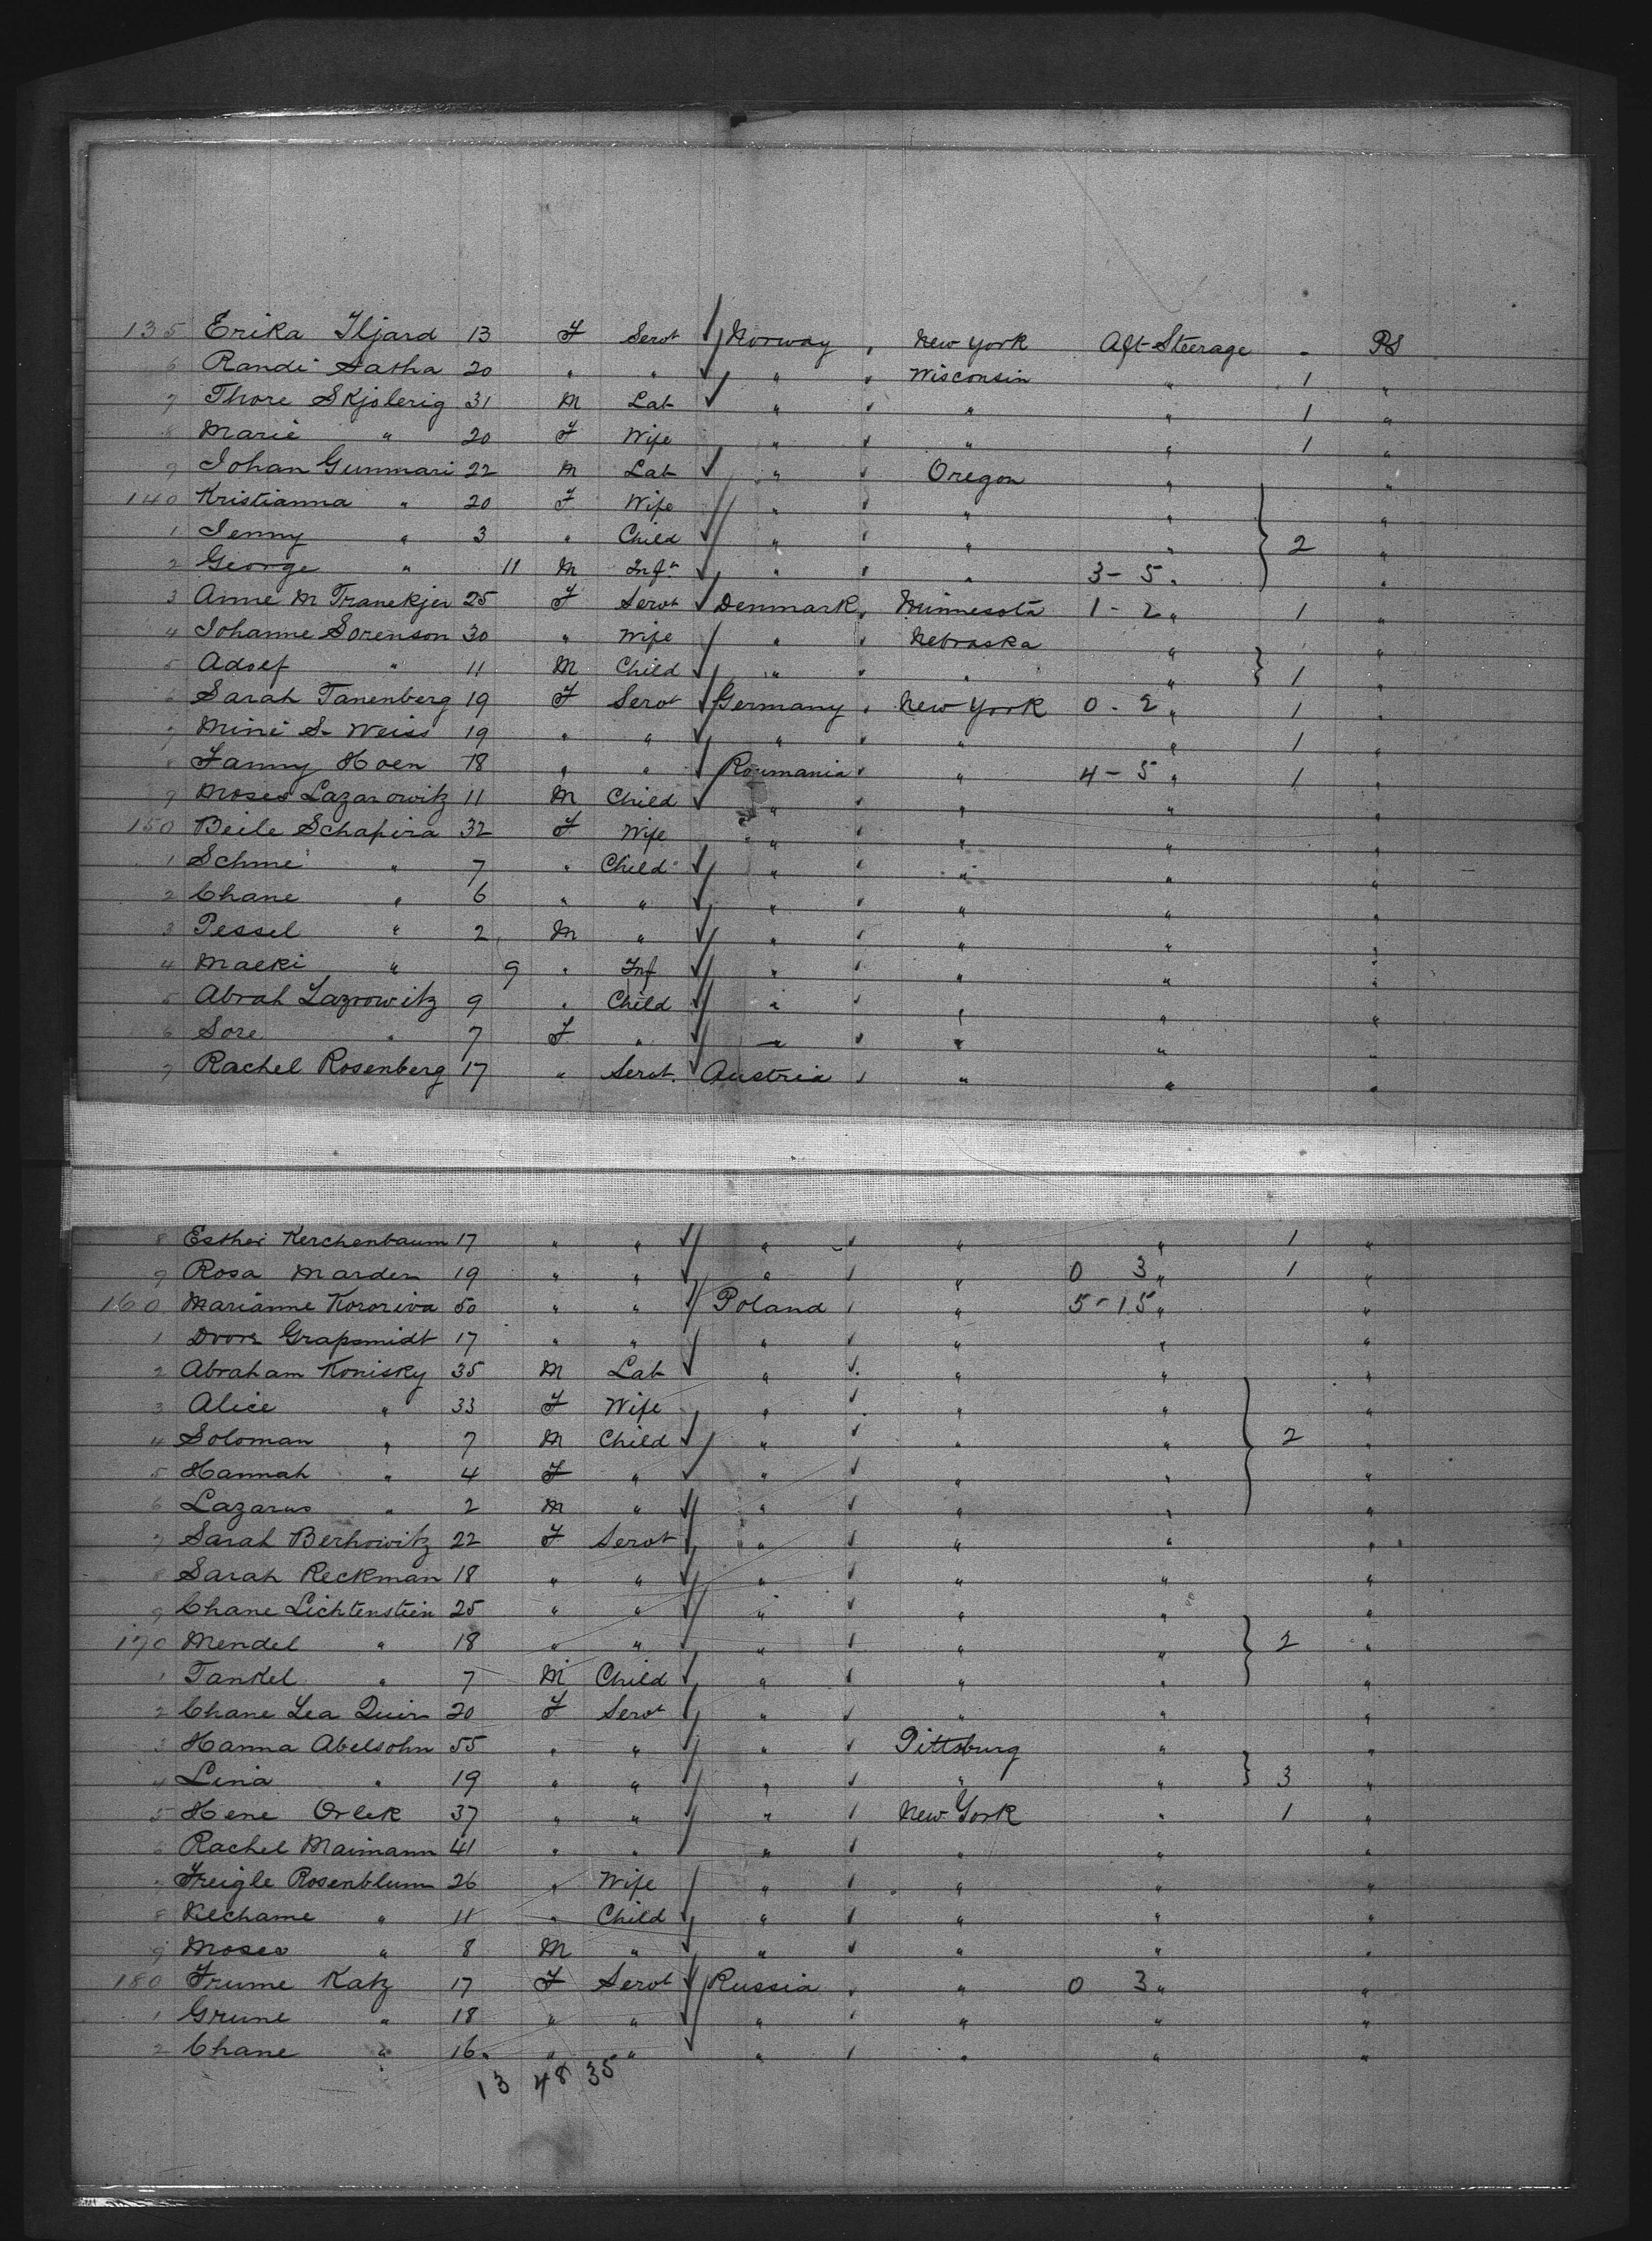 135 Erika Iljard 13 F Servt Norway New York Aft Steerage - PS
6 Randi Satha 20 " " " Wisconsin " 1 "
7 Thore Skjolerig 31 M Lab " " " 1 "
8 Marie " 20 F Wife " " " 1 "
9 Johan Gunmari 22 M Lab " Oregon " "
140 Kristianna " 20 F Wife " " " "
1 Jenny " 3 " Child " " " 2 "
2 George " 11 M Inft " " 3-5 " "
3 Anne M Tranekjer 25 F Servt Denmark Minnesota 1-2 " 1 "
4 Johanne Sorenson 30 " Wife " Nebraska " "
5 Adolf " 11 M Child " " " 1 "
6 Sarah Tanenberg 19 F Servt Germany New York 0-2 " 1 "
7 Mini S. Weiss 19 " " " " " 1 "
8 Fanny Hoen 18 " " Roumania " 4-5 " 1 "
9 Moses Lazarowitz 11 M Child " " " "
150 Beile Schapira 32 F Wife " " " "
1 Schme " 7 " Child " " " "
2 Chane " 6 " " " " " "
3 Pessel " 2 M " " " " "
4 Malki " 9 " Inf " " " "
5 Abrah Lazrowitz 9 " Child " " " "
6 Sore " 7 F " " " " "
7 Rachel Rosenberg 17 " Servt. Austria " " "
8 Esther Kerchenbaum 17 " " " " " 1 "
9 Rosa Marden 19 " " " " 0 3 " 1 "
160 Marianne Kororiva 50 " " Poland " 5-15 " "
1 Dvore Grapsmidt 17 " " " " " "
2 Abraham Konisky 35 M Lab " " " "
3 Alice " 33 F Wife " " " "
4 Soloman " 7 M Child " " " 2 "
5 Hannah " 4 F " " " " "
6 Lazarus " 2 M " " " " "
7 Sarah Berhowitz 22 F Servt " " " "
8 Sarah Reckman 18 " " " " " "
9 Chane Lichtenstein 25 " " " " " "
170 Mendel " 18 " " " " " 2 "
1 Tankel " 7 M Child " " " "
2 Chane Lea Quir 20 F Servt " " " "
3 Hanna Abelsohn 55 " " " Pittsburg " "
4 Lina " 19 " " " " " 3 "
5 Hene Orlek 37 " " " New York " 1 "
6 Rachel Maimann 41 " " " " " "
7 Freigle Rosenblum 26 " Wife " " " "
8 Kilchame " 11 " Child " " " "
9 Moses " 8 M " " " " "
180 Frume Katz 17 F Servt Russia " 0 3 " "
1 Grune " 18 " " " " " "
2 Chane " 16 " " " " " "
13 48 35